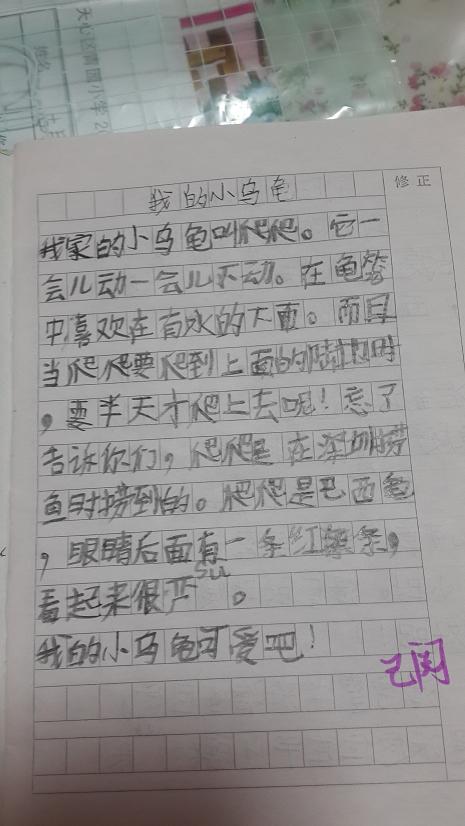 天心区青园小学2
修正
我的小乌龟
我家的小乌龟叫爬爬。它一
会儿动一会儿不动。在龟箱
中喜欢在有水的下面。而且
当爬爬要爬到上面的陆地时
，要半天才爬上去呢！忘了
告诉你们，爬爬是在深圳捞
鱼时捞到的。爬爬是巴西龟
，眼睛后面有一条红条条，
看起来很严su。
我的小乌龟可爱吧！
已阅